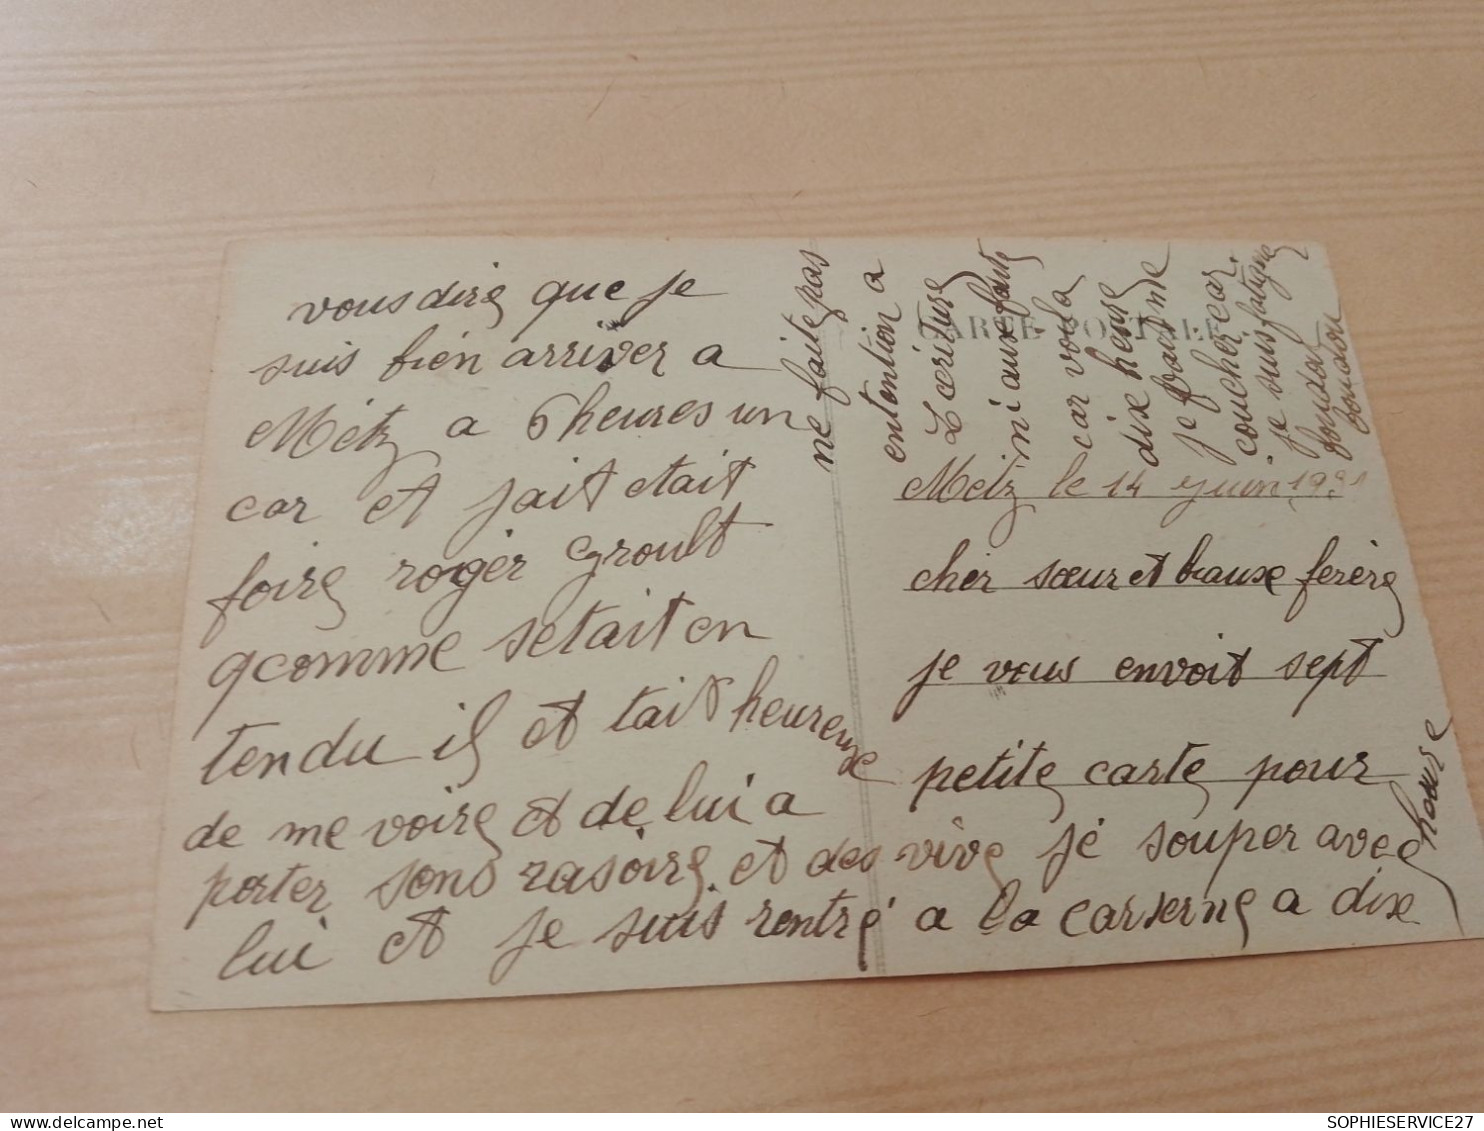 Metz le 14 juin 19
cher sœur et beause ferère
je vous envoit sept
petite carte pour
vous dire que je
suis bien arriver a
Metz a 6 heures un
car et jait etait
foire roger Groult
qcomme setait en
tendu il et tait heureuse
de me voire et de lui a
porter sons rasoire et des vive jé souper avec
lui et je suis rentré a la caserne a dixe
heure
ne faite pas
entention a
Lecriture
mi auxe faite
car voila
dixe heure
je vai me
coucher car
je suis fatigué
CARTE POSTALE
SOPHIESERVICE27